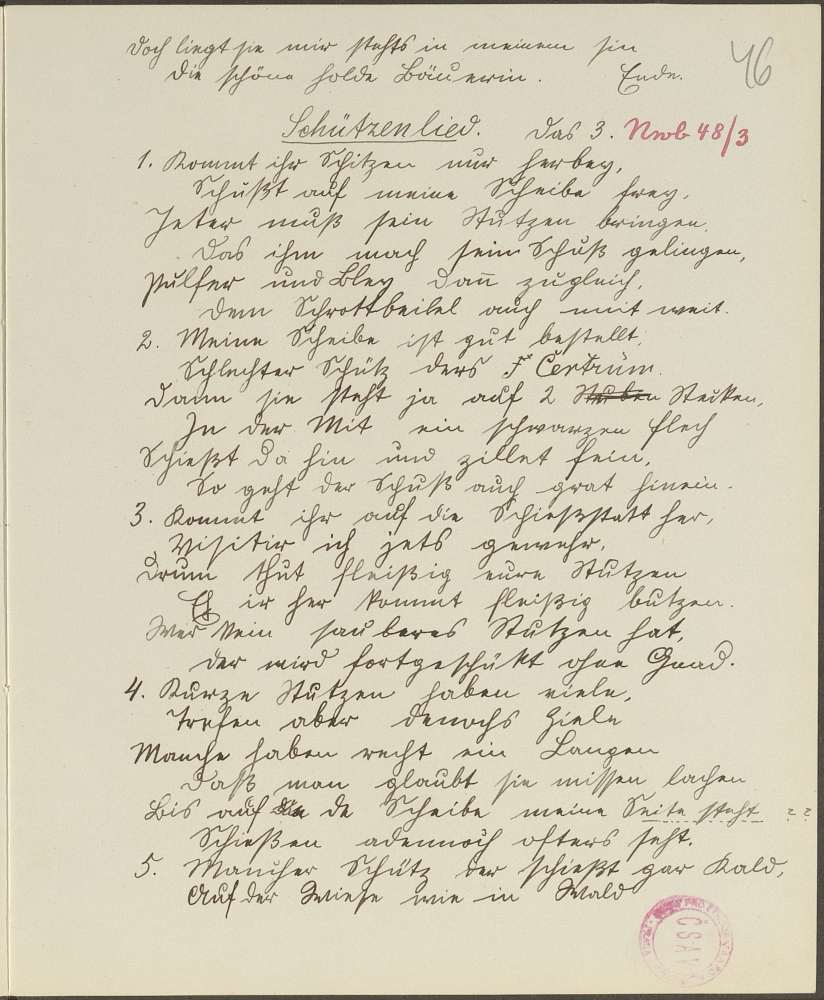 doch liegt sie mir stehts in meinem sin
die schöne holde Bäuerin. Ende.
46
Schützenlied. Das 3. Nwb 48/3
1. Kommt ihr Schitzen nur herbey,
Schußt auf meine Scheibe frey,
Jeter muß sein Stutzen bringen,
Das ihm mach sein Schuß gelingen,
Pulfer und Bley dann zugleich,
dem Schrottbeitel auch mit weit.
2. Meine Scheibe ist gut bestellt,
Schlechter Schütz ders F Centrum.
Dann sie steht ja auf 2 Stecken,
In der Mit ein schwarzen flech
Schießt da hin und zillet fein,
So geht der Schuß auch grat hinein.
3. Kommt ihr auf die Schießstatt her,
Visitir ich jets gewehr,
Drum thut fleißig eure Stutzen
Eh ir her kommt fleißig butzen.
Wer kein sauberes Stutzen hat,
der wird fortgeschükt ohne Gnad.
4. Kurze Stutzen haben viele,
Trefen aber denochs Ziele
Manche haben recht ein Langen
Daß man glaubt sie missen lachen
Bis auf de Scheibe meine Seite steht ??
Schießen adennoch ofters feht.
5. Mancher Schütz der schießt gar Kald,
Auf der Wiese wie in Wald
ČSAV